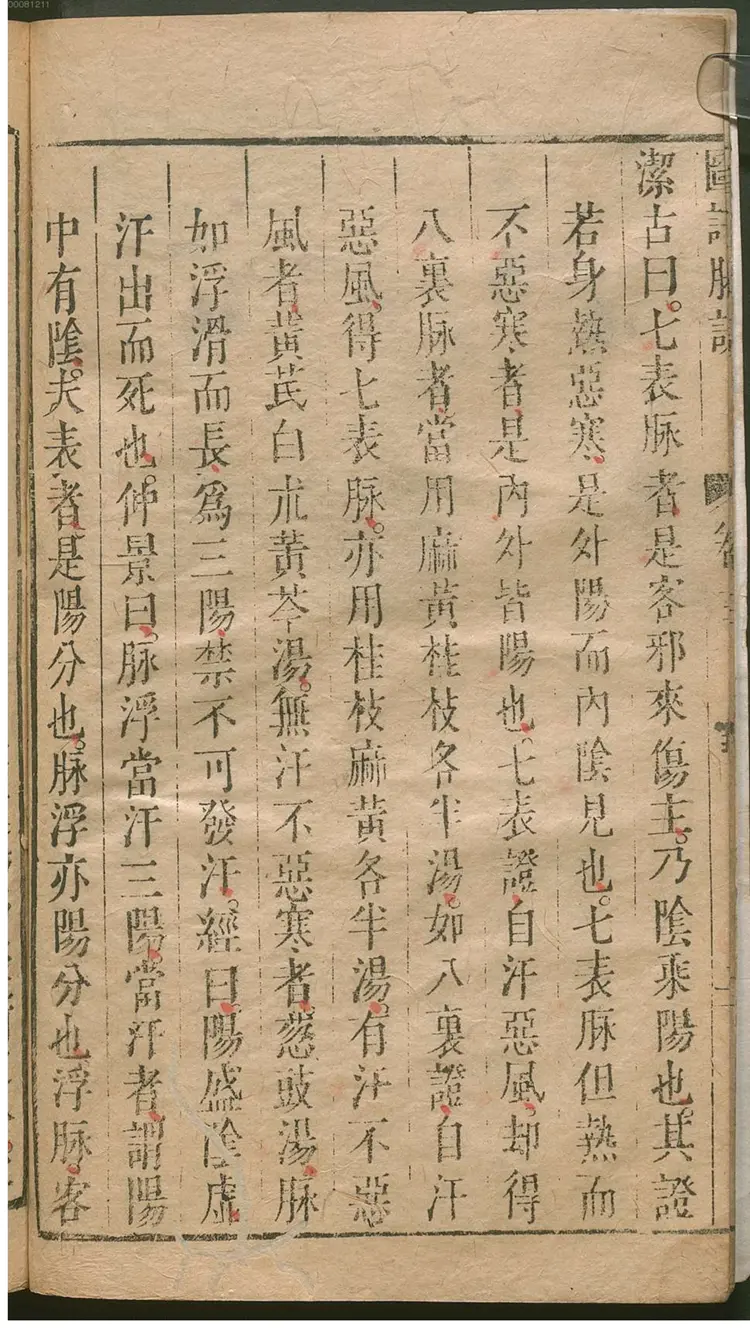 00081211
圖註脉訣 卷
潔古曰七表脉者是客邪來傷主乃陰乘陽也其證
若身熱惡寒是外陽而內陰見也七表脉但熱而
不惡寒者是內外皆陽也七表證自汗惡風却得
八裏脉者當用麻黃桂枝各半湯如八裏證自汗
惡風得七表脉亦用桂枝麻黃各半湯有汗不惡
風者黃芪白朮黃芩湯無汗不惡寒者葱豉湯脉
如浮滑而長爲三陽禁不可發汗經曰陽盛陰虛
汗出而死也仲景曰脉浮當汗三陽當汗者謂陽
中有陰夫表者是陽分也脉浮亦陽分也浮脉客